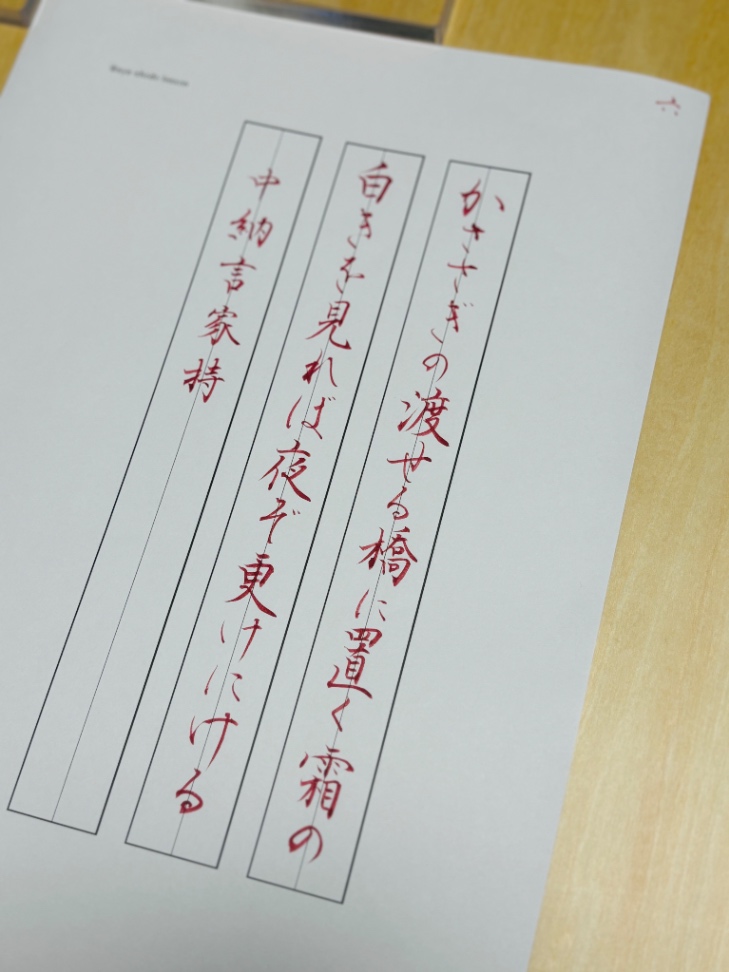 六
かささぎの渡せる橋に置く霜の
白きを見れば夜ぞ更けにける
中納言家持